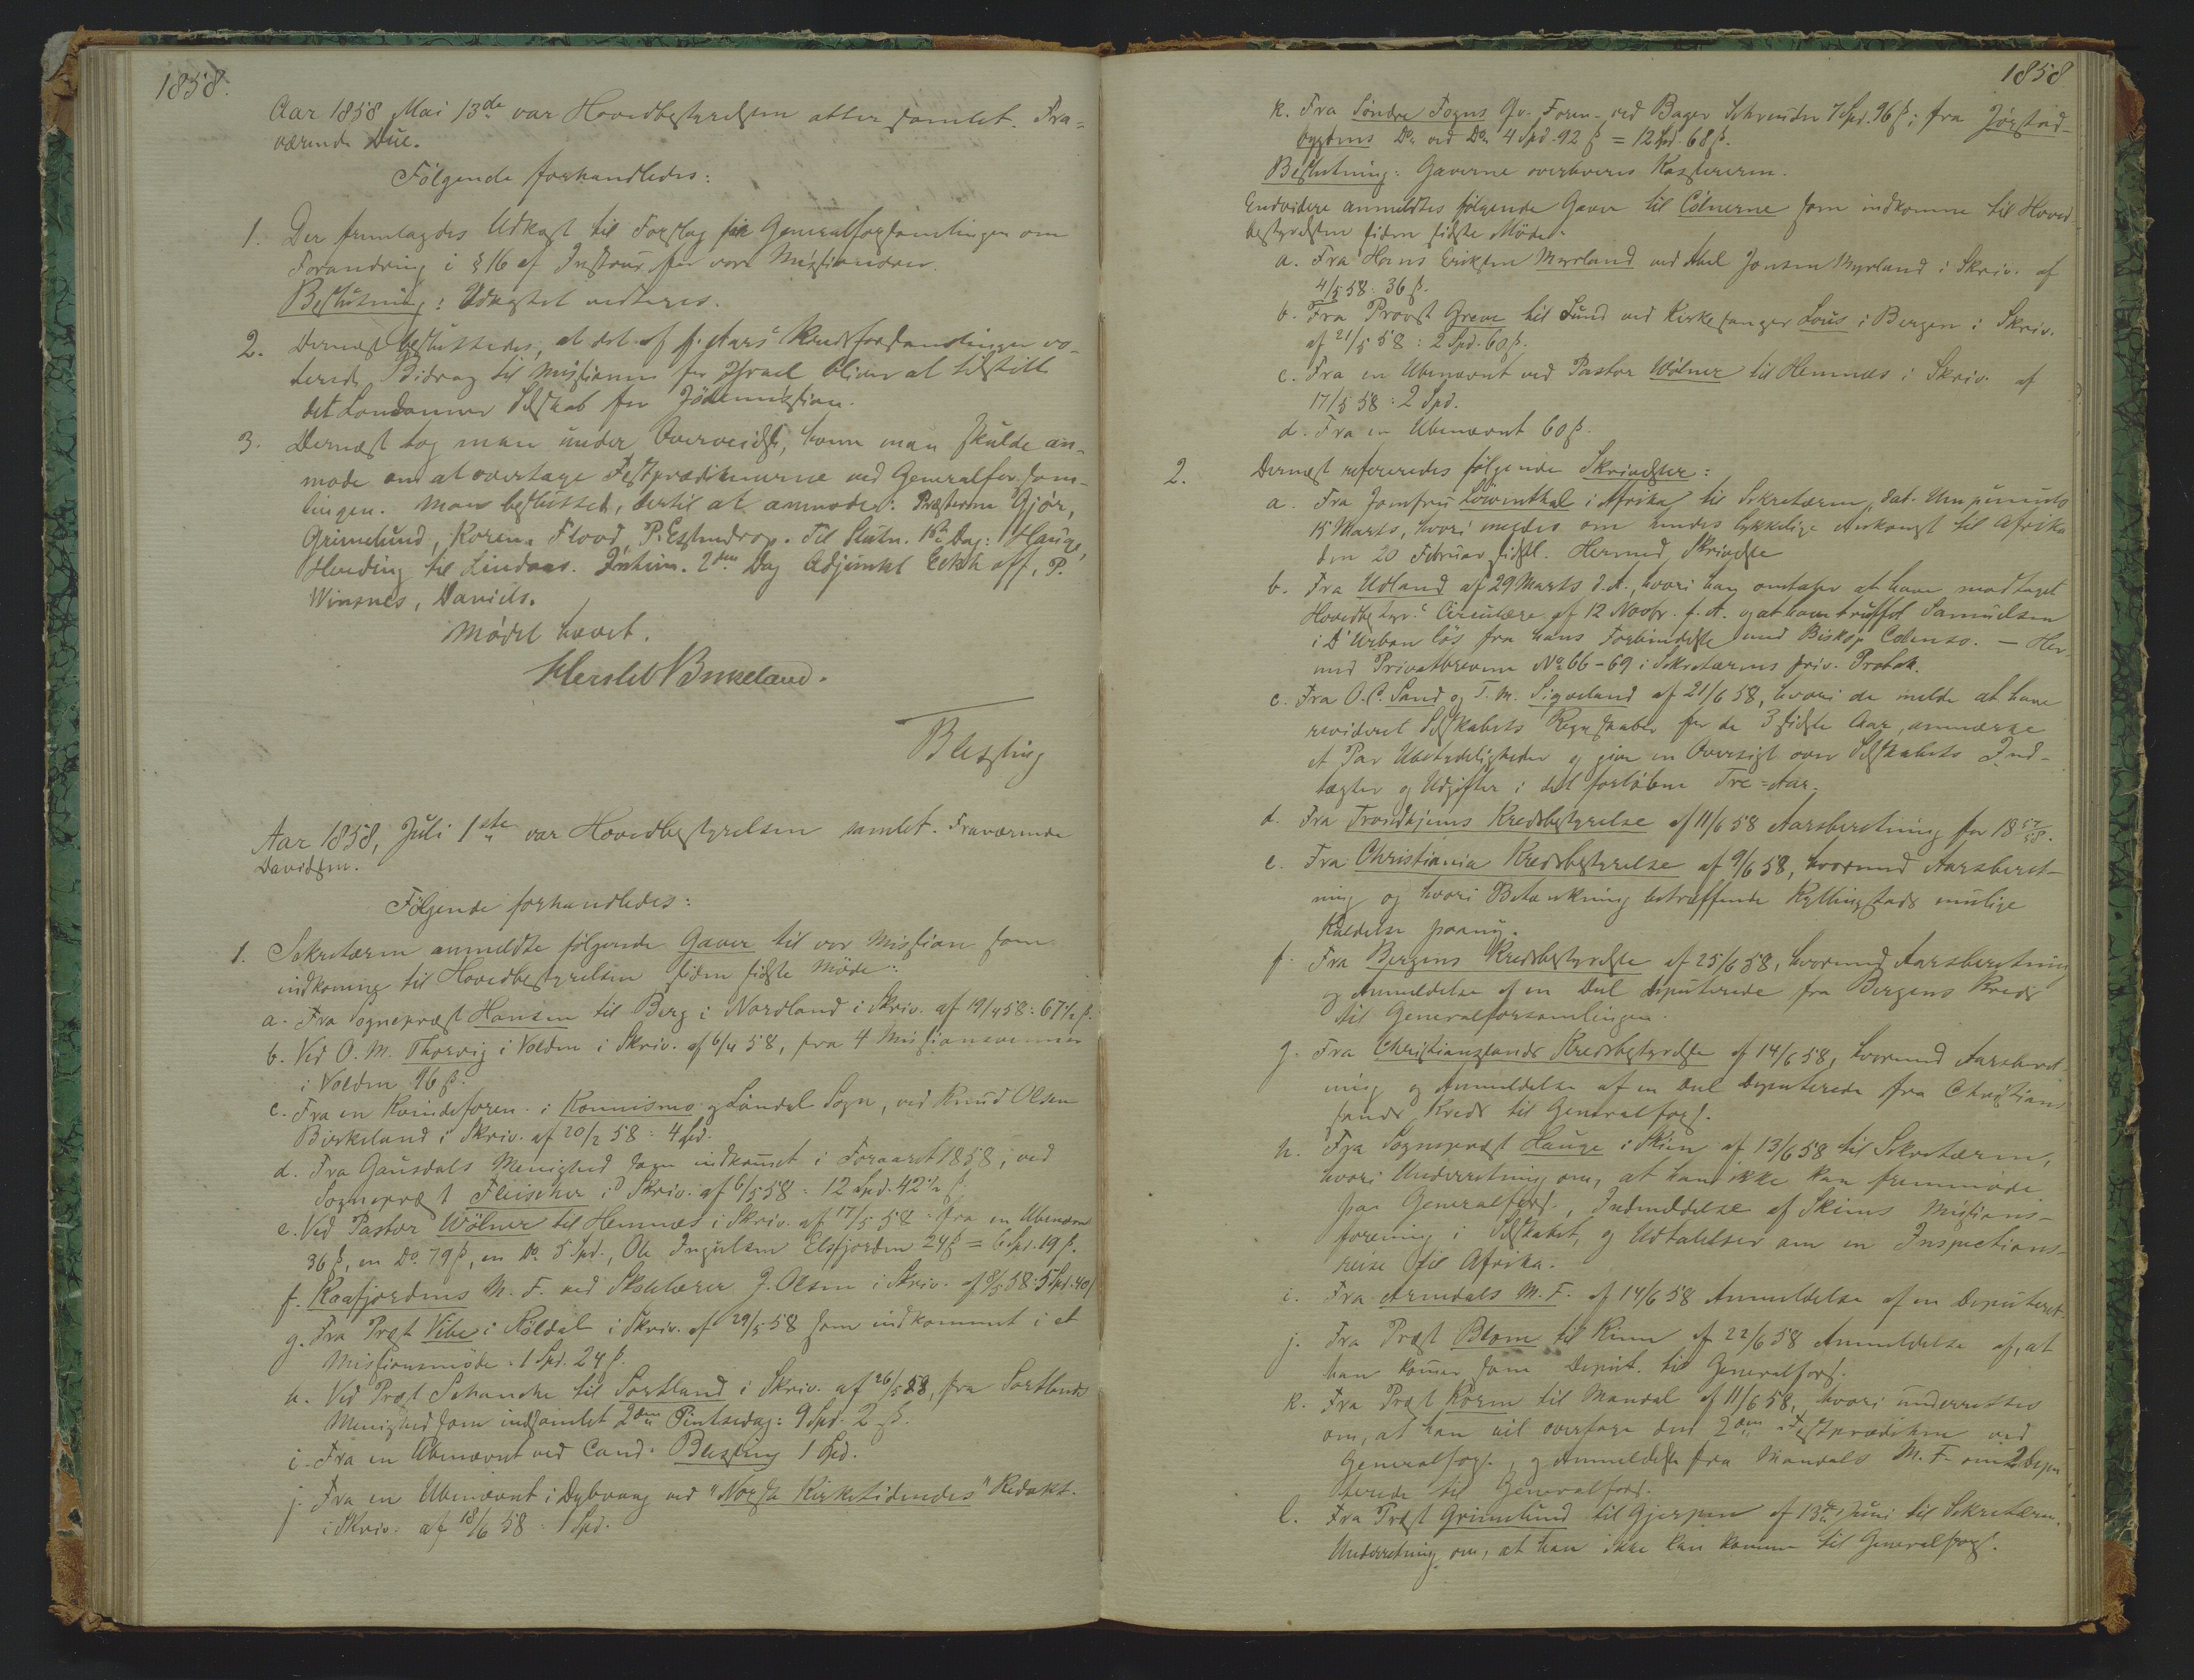 1858.
Aar 1858 Mai 13de var Hovedbestyrelsen atter samlet. Fra=
værende Due.
Følgende forhandledes:
1. Der fremlagdes Udkast til Forslag for Generalforsamlingen om
Forandring i § 16 af Instrux for vore Missionærer.
Beslutning: Udkastet vedtoges.
2. Dernæst besluttedes, at det af f. Aars Kredsforsamlinger vo-
terede Bidrag til Missionen for Israel bliver at tilstille
det Londonner Selskab for Jødemission.
3. Dernæst tog man under Overveielse, hvem man skulde an-
mode om at overtage Festprædikenerne ved Generalforsam-
lingen. Man besluttet, dertil at anmode: Præsterne Gjør,
Grimelund, Koren, Flood, P. Estendrop. Til Slutn. 1ste Dag: Hauge,
Heuding til Lindaas. Intim. 2den Dag Adjunkt Eckhoff, P.
Winsnes, Daniels.
Mødet hævet.
Hersleb Birkeland.
Blessing
Aar 1858, Juli 1ste var Hovedbestyrelsen samlet. Fraværende
Davidsen.
Følgende forhandledes:
1. Sekretæren anmeldte følgende Gaver til vor Mission som
indkomne til Hovedbestyrelsen siden sidste Møde:
a. Fra Sognepræst Hansen til Berg i Nordland i Skriv. af 19/4 58: 67½ ß.
b. Ved O. M. Thorvig i Volden i Skriv. af 6/4 58, fra 4 Missionsvenner
i Volden 96 ß.
c. Fra en Kvindeforen. i Konnismo og Landel Sogn, ved Knud Olsen
Birkeland i Skriv. af 20/2 58: 4 Spd.
d. Fra Gausdals Menighed som indkommet i Foraaret 1858, ved
Sognepræst Fleischer i Skriv. af 6/5 58: 12 Spd. 42½ ß.
e. Ved Pastor Wölner til Hemnæs i Skriv. af 17/5 58: fra en Ubenævnt
36 ß, en Do 79 ß, en Do 5 Spd., Ole Ingulsen Elsfjorden 24 ß = 6 Spd. 19 ß.
f. Kaafjordens M. F. ved Skolelærer J. Olsen i Skriv. af 8/5 58: 5 Spd. 40 ß
g. Fra Præst Vibe i Röldal i Skriv. af 29/5 58 som indkommet i et
Missionsmöde: 1 Spd. 24 ß.
h. Ved Præst Schanche til Sortland i Skriv. af 26/5 58, fra Sortlands
Menighed som indsamlet 2den Pintsedag: 9 Spd. 2 ß.
i. Fra en Ubenævnt ved Cand. Blessing 1 Spd.
j. Fra en Ubenævnt i Dybvaag ved "Norsk Kirketidendes" Redakt.
i Skriv. af 18/6 58: 1 Spd.
1858
k. Fra Søndre Sogns Qv. Foren. ved Bager Schreuder 7 Spd. 96 ß; fra Jørstad-
bygdens Do ved Do 4 Spd. 92 ß = 12 Spd. 68 ß.
Beslutning: Gaverne overleveres Kassereren.
Endvidere anmeldtes følgende Gaver til Cölnerne som indkomne til Hoved-
bestyrelsen siden sidste Möde:
a. Fra Hans Eriksen Myrland ved Abel Jonsen Myrland i Skriv. af
4/5 58: 36 ß.
b. Fra Provst Greve til Lund ved Kirkesanger Lous i Bergen i Skriv.
af 21/5 58: 2 Spd. 60 ß.
c. Fra en Ubenævnt ved Pastor Wölner til Hemnæs i Skriv. af
17/5 58: 2 Spd.
d. Fra en Ubenævnt 60 ß.
2. Dernæst refereredes følgende Skrivelser:
a. Fra Jomfru Löwenthal i Afrika til Sekretæren, dat. Umpumulo
15 Marts, hvori meldes om hendes lykkelige Ankomst til Afrika
den 20 Februar sidstl. Hermed Skrivelse
b. Fra Udland af 29 Marts d. A., hvori han omtaler at have modtaget
Hovedbestyr.s Circulære af 12 Novbr. f. A. og at have truffet Samuelsen
i D'Urban løs fra hans Forbindelse med Biskop Colenso. — Her-
med Privatbrevene No 66-69 i Sekretærens priv. Protok.
c. Fra O. C. Sand og T. M. Sigveland af 21/6 58, hvori de melde at have
revideret Selskabets Regnskaber for de 3 sidste Aar, anmærke
et Par Ubetydeligheder og give en Oversigt over Selskabets Ind-
tægter og Udgifter i det forløbne Tre-Aar.
d. Fra Trondhjems Kredsbestyrelse af 11/6 58 Aarsberetning for 1857/58.
e. Fra Christiania Kredsbestyrelse af 9/6 58, hvormed Aarsberet-
ning og hvori Betænkning betræffende Kyllingstads mulige
Kaldelse paany.
f. Fra Bergens Kredsbestyrelse af 25/6 58, hvormed Aarsberetning
og Anmeldelse af en Deel Deputerede fra Bergens Kreds
til Generalforsamlingen.
g. Fra Christianssands Kredsbestyrelse af 14/6 58, hvormed Aarsberet-
ning og Anmeldelse af en Deel Deputerede fra Christians-
sands Kreds til Generalfors.
h. Fra Sognepræst Hauge i Skien af 13/6 58 til Sekretæren,
hvori Underretning om, at han ikke kan fremmøde
paa Generalfors., Indmeldelse af Skiens Missions-
forening i Selskabet, og Udtalelser om en Inspections-
reise til Afrika.
i. Fra Arendals M. F. af 14/6 58 Anmeldelse af en Deputeret.
j. Fra Præst Blom til Kinn af 22/6 58 Anmeldelse af, at
han kommer som Deput. til Generalfors.
k. Fra Præst Koren til Mandal af 11/6 58, hvori underrettes
om, at han vil overtage den 2den Festprædiken ved
Generalfors., og Anmeldelse fra Mandals M. F. om 2 Depu-
terede til Generalfors.
l. Fra Præst Grimelund til Gjerpen af 13de Juni til Sekretæren.
Underretning om, at han ikke kan komme til Generalfors.